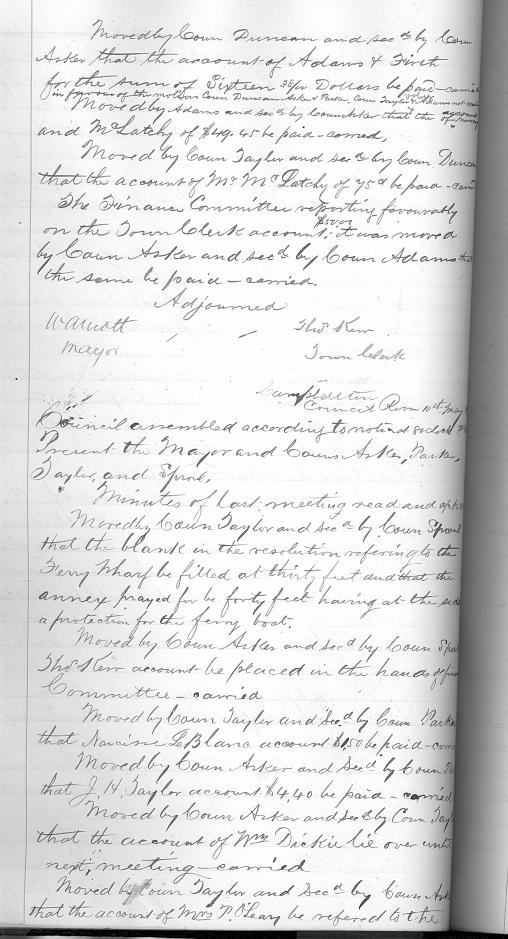 Moved by Coun Duncan and secd by Coun
Asker that the account of Adams & Firth
for the sum of Sixteen 38/00 Dollars be paid - carried
in favour of the motion Coun Duncan Asker & Parker, Coun Taylor & Adams not voting
Moved by Adams and secd by Coun Asker that the account of Murray
and McLatchy of $49.45 be paid - carried,
Moved by Coun Taylor and secd by Coun Duncan
that the account of Mr McLatchy of 75c be paid - carri
The Finance Committee reporting favourably
on the Town Clerk account, $50.00 it was moved
by Coun Asker and secd by Coun Adams that
the same be paid - carried.
Adjourned
W Alliott Thos Kerr
Mayor Town Clerk
Campbellton
Council Room 10th May
Council assembled according to notice at 8 oclock P.M.
Present the Mayor and Couns Asker, Parker,
Taylor, and Sproul.
Minutes of last meeting read and appro
Moved by Coun Taylor and secd by Coun Sproul
that the blank in the resolution refering to the
Ferry Wharf be filled at thirty feet and that the
annex prayed for be forty feet having at the side
a protection for the ferry boat.
Moved by Coun Asker and secd by Coun Sproul
Thos Kerr account be placed in the hands of finan
Committee - carried
Moved by Coun Taylor and Secd by Coun Parker
that Narcisse LeBlanc account $1.50 be paid - carried
Moved by Coun Asker and Secd by Coun
that J. H. Taylor account $4.40 be paid - carried
Moved by Coun Asker and secd by Coun Tayl
that the account of Wm Dickie lie over until
next, meeting - carried
Moved by Coun Taylor and Secd by Coun Ask
that the account of Mrs P. O'Leary be refered to the